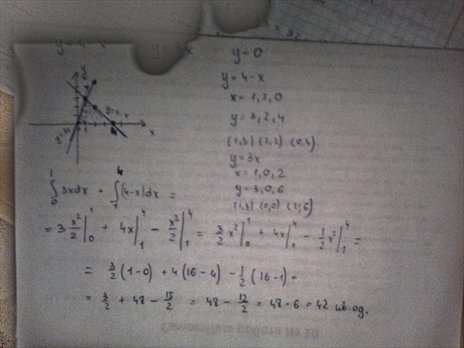 y=0
y=4-x
x=1,2,0
y=3,2,4
(1,3) (2,2) (0,4)
y=3x
x=1,0,2
y=3,0,6
(1,3) (0,0) (2,6)
∫₀¹ 3xdx + ∫₁⁴ (4-x)dx =
= 3 x²/2 |₀¹ + 4x |₁⁴ - x²/2 |₁⁴ = 3/2 x² |₀¹ + 4x |₁⁴ - 1/2 x² |₁⁴ =
= 3/2 (1-0) + 4(16-4) - 1/2 (16-1) =
= 3/2 + 48 - 15/2 = 48 - 12/2 = 48-6 = 42 кв од.